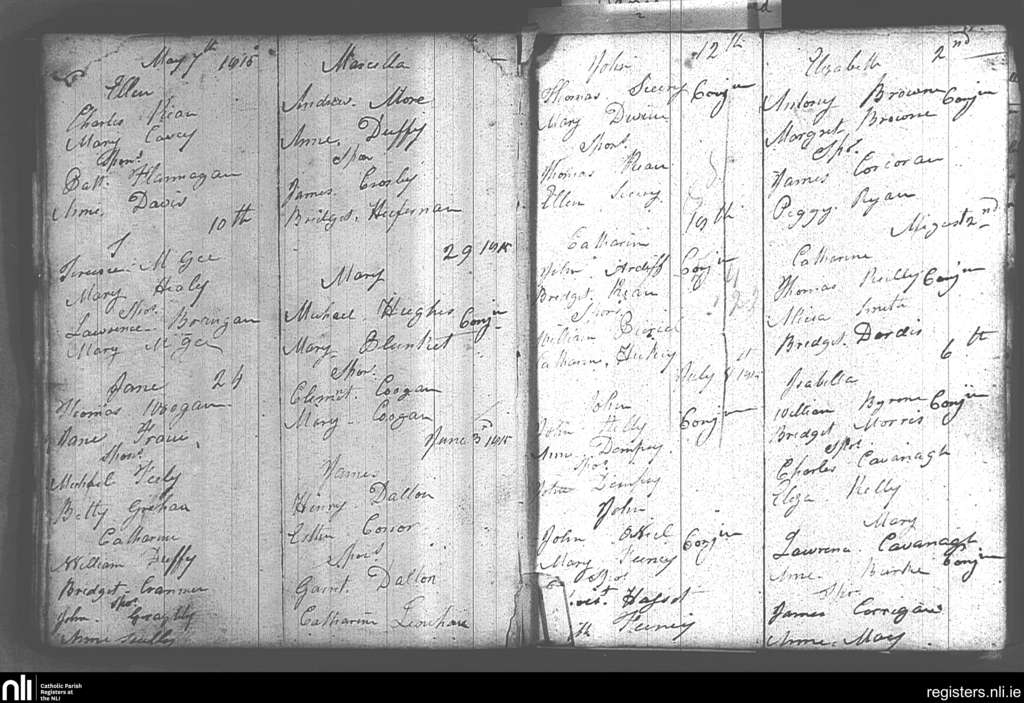 May 7th 1815
Ellen
Charles Kian
Mary Cavey
Spons
Patt. Flannagan
Anne. Davis
10th
Mc Gee
Mary Healy
Spor.
Lawrence Branigan
Mary McGee
Jane 24
Thomas Woogan
Jane
Spons
Michael Feely
Betty Grehan
Catharine
William Duffy
Bridget Cranmer
Spo.
John Geaghty
Anne Scully
Marcella
Andrew More
Anne. Duffy
Spon
James. Crosby
Bridget. Heifernan
29 1815
Mary
Michael Hughes
Conju
Mary Blunket
Spor.
Clemnt. Coogan
Mary Coogan
June 3d 1815
James
Henry Dalton
Esther Conor
Spors
Garrt. Dalton
Catharine Leonhan
12th
John
Thomas Seery Conju
Mary Divine
Spons.
Thomas Kean
Ellen Seery
19th
Catharin
John Ardiff Conju
Bridget Kean
Spors
William
Catharin. Hickey
July 1815
John
John Conju
Ann. Dempsey
Spor
John Dempsey
John
John ONeil Conju
Mary Feeney
Spor
Hasset
Feeney
2nd
Elizabeth
Antony Brown Conju
Margret Browne
Spr.
James Corcoran
Peggy Ryan
August 2nd
Catharine
Thomas Reilly Conju
Alicia Smith
Bridget. Dardis
6th
Isabella
William Byrne Conju
Bridget Morris
Spor
Charles Cavanagh
Eliza Kelly
Mary
Lawrence Cavanagh
Anne. Burke Conju
Spr.
James Corrigan
Anne. May
nli
Catholic Parish
Registers at
the NLI
registers.nli.ie